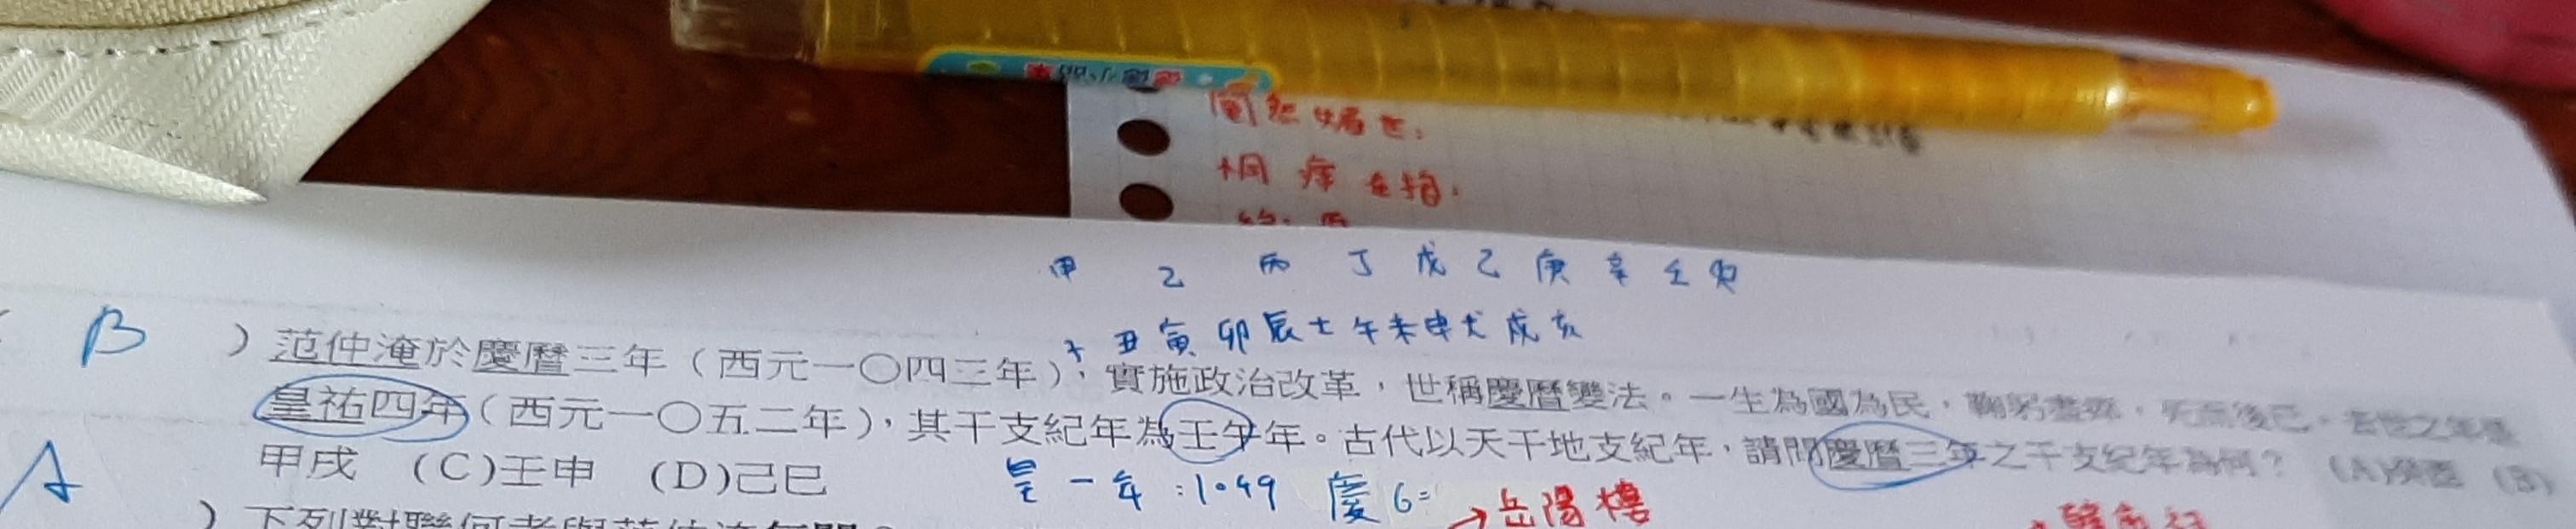 媚世:
在抱:
甲 乙 丙 丁 戊 己 庚 辛 壬 癸
子 丑 寅 卯 辰 士 午 未 申 戌 亥
( B ) 范仲淹於慶曆三年（西元一〇四三年），實施政治改革，世稱慶曆變法。一生為國為民，鞠躬盡瘁，死而後已，去世之年是
皇祐四年（西元一〇五二年），其干支紀年為壬午年。古代以天干地支紀年，請問慶曆三年之干支紀年為何？ (A)癸酉 (B)
甲戌 (C)壬申 (D)己巳
皇一年:1049 慶6= →岳陽樓
A ) 下列對聯何者與范仲淹